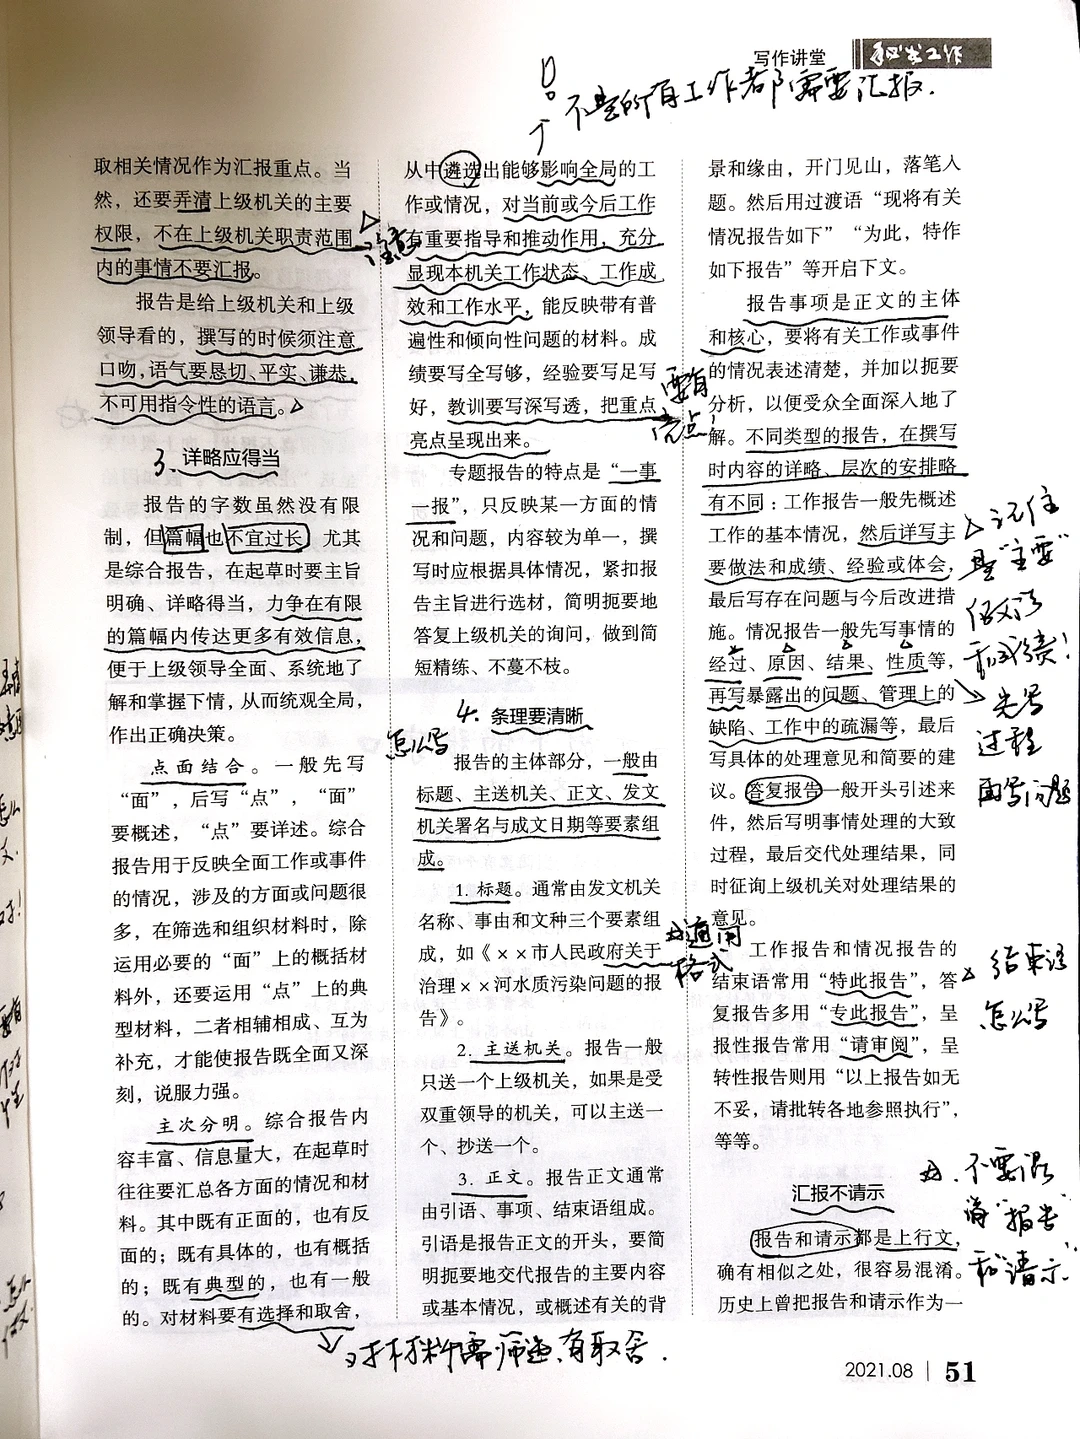 写作讲堂
秘书工作
不是所有工作都需要汇报.
取相关情况作为汇报重点。当
然，还要弄清上级机关的主要
权限，不在上级机关职责范围
内的事情不要汇报。
注意
报告是给上级机关和上级
领导看的，撰写的时候须注意
口吻，语气要恳切、平实、谦恭，
不可用指令性的语言。
3、详略应得当
报告的字数虽然没有限
制，但篇幅也不宜过长，尤其
是综合报告，在起草时要主旨
明确、详略得当，力争在有限
的篇幅内传达更多有效信息，
便于上级领导全面、系统地了
解和掌握下情，从而统观全局，
作出正确决策。
点面结合。一般先写
“面”，后写“点”，“面”
要概述，“点”要详述。综合
报告用于反映全面工作或事件
的情况，涉及的方面或问题很
多，在筛选和组织材料时，除
运用必要的“面”上的概括材
料外，还要运用“点”上的典
型材料，二者相辅相成、互为
补充，才能使报告既全面又深
刻，说服力强。
主次分明。综合报告内
容丰富、信息量大，在起草时
往往要汇总各方面的情况和材
料。其中既有正面的，也有反
面的；既有具体的，也有概括
的；既有典型的，也有一般
的。对材料要有选择和取舍，
对材料需筛选、有取舍.
从中遴选出能够影响全局的工
作或情况，对当前或今后工作
有重要指导和推动作用，充分
显现本机关工作状态、工作成
效和工作水平，能反映带有普
遍性和倾向性问题的材料。成
绩要写全写够，经验要写足写
好，教训要写深写透，把重点
亮点呈现出来。
要有
亮点!
专题报告的特点是“一事
一报”，只反映某一方面的情
况和问题，内容较为单一，撰
写时应根据具体情况，紧扣报
告主旨进行选材，简明扼要地
答复上级机关的询问，做到简
短精练、不蔓不枝。
4. 条理要清晰
怎么写
报告的主体部分，一般由
标题、主送机关、正文、发文
机关署名与成文日期等要素组
成。
1. 标题。通常由发文机关
名称、事由和文种三个要素组
成，如《××市人民政府关于
治理××河水质污染问题的报
告》。
通用
格式
2. 主送机关。报告一般
只送一个上级机关，如果是受
双重领导的机关，可以主送一
个、抄送一个。
3. 正文。报告正文通常
由引语、事项、结束语组成。
引语是报告正文的开头，要简
明扼要地交代报告的主要内容
或基本情况，或概述有关的背
景和缘由，开门见山，落笔入
题。然后用过渡语“现将有关
情况报告如下”“为此，特作
如下报告”等开启下文。
报告事项是正文的主体
和核心，要将有关工作或事件
的情况表述清楚，并加以扼要
分析，以便受众全面深入地了
解。不同类型的报告，在撰写
时内容的详略、层次的安排略
有不同：工作报告一般先概述
工作的基本情况，然后详写主
要做法和成绩、经验或体会，
最后写存在问题与今后改进措
施。情况报告一般先写事情的
经过、原因、结果、性质等，
再写暴露出的问题、管理上的
缺陷、工作中的疏漏等，最后
写具体的处理意见和简要的建
议。答复报告一般开头引述来
件，然后写明事情处理的大致
过程，最后交代处理结果，同
时征询上级机关对处理结果的
意见。
记住
是“主要”
做法
和成绩!
先写
过程
再写问题
工作报告和情况报告的
结束语常用“特此报告”，答
复报告多用“专此报告”，呈
报性报告常用“请审阅”，呈
转性报告则用“以上报告如无
不妥，请批转各地参照执行”，
等等。
结束语
怎么写
汇报不请示
报告和请示都是上行文，
确有相似之处，很容易混淆。
历史上曾把报告和请示作为一
不要混
淆“报告”
和“请示”
2021.08 | 51